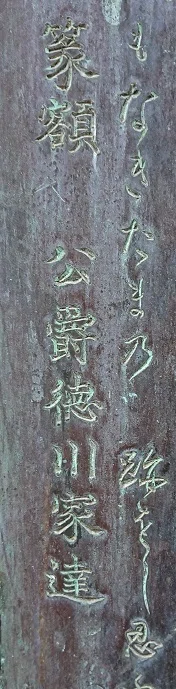 もなきたまの跡をし忍
篆額 公爵徳川家達